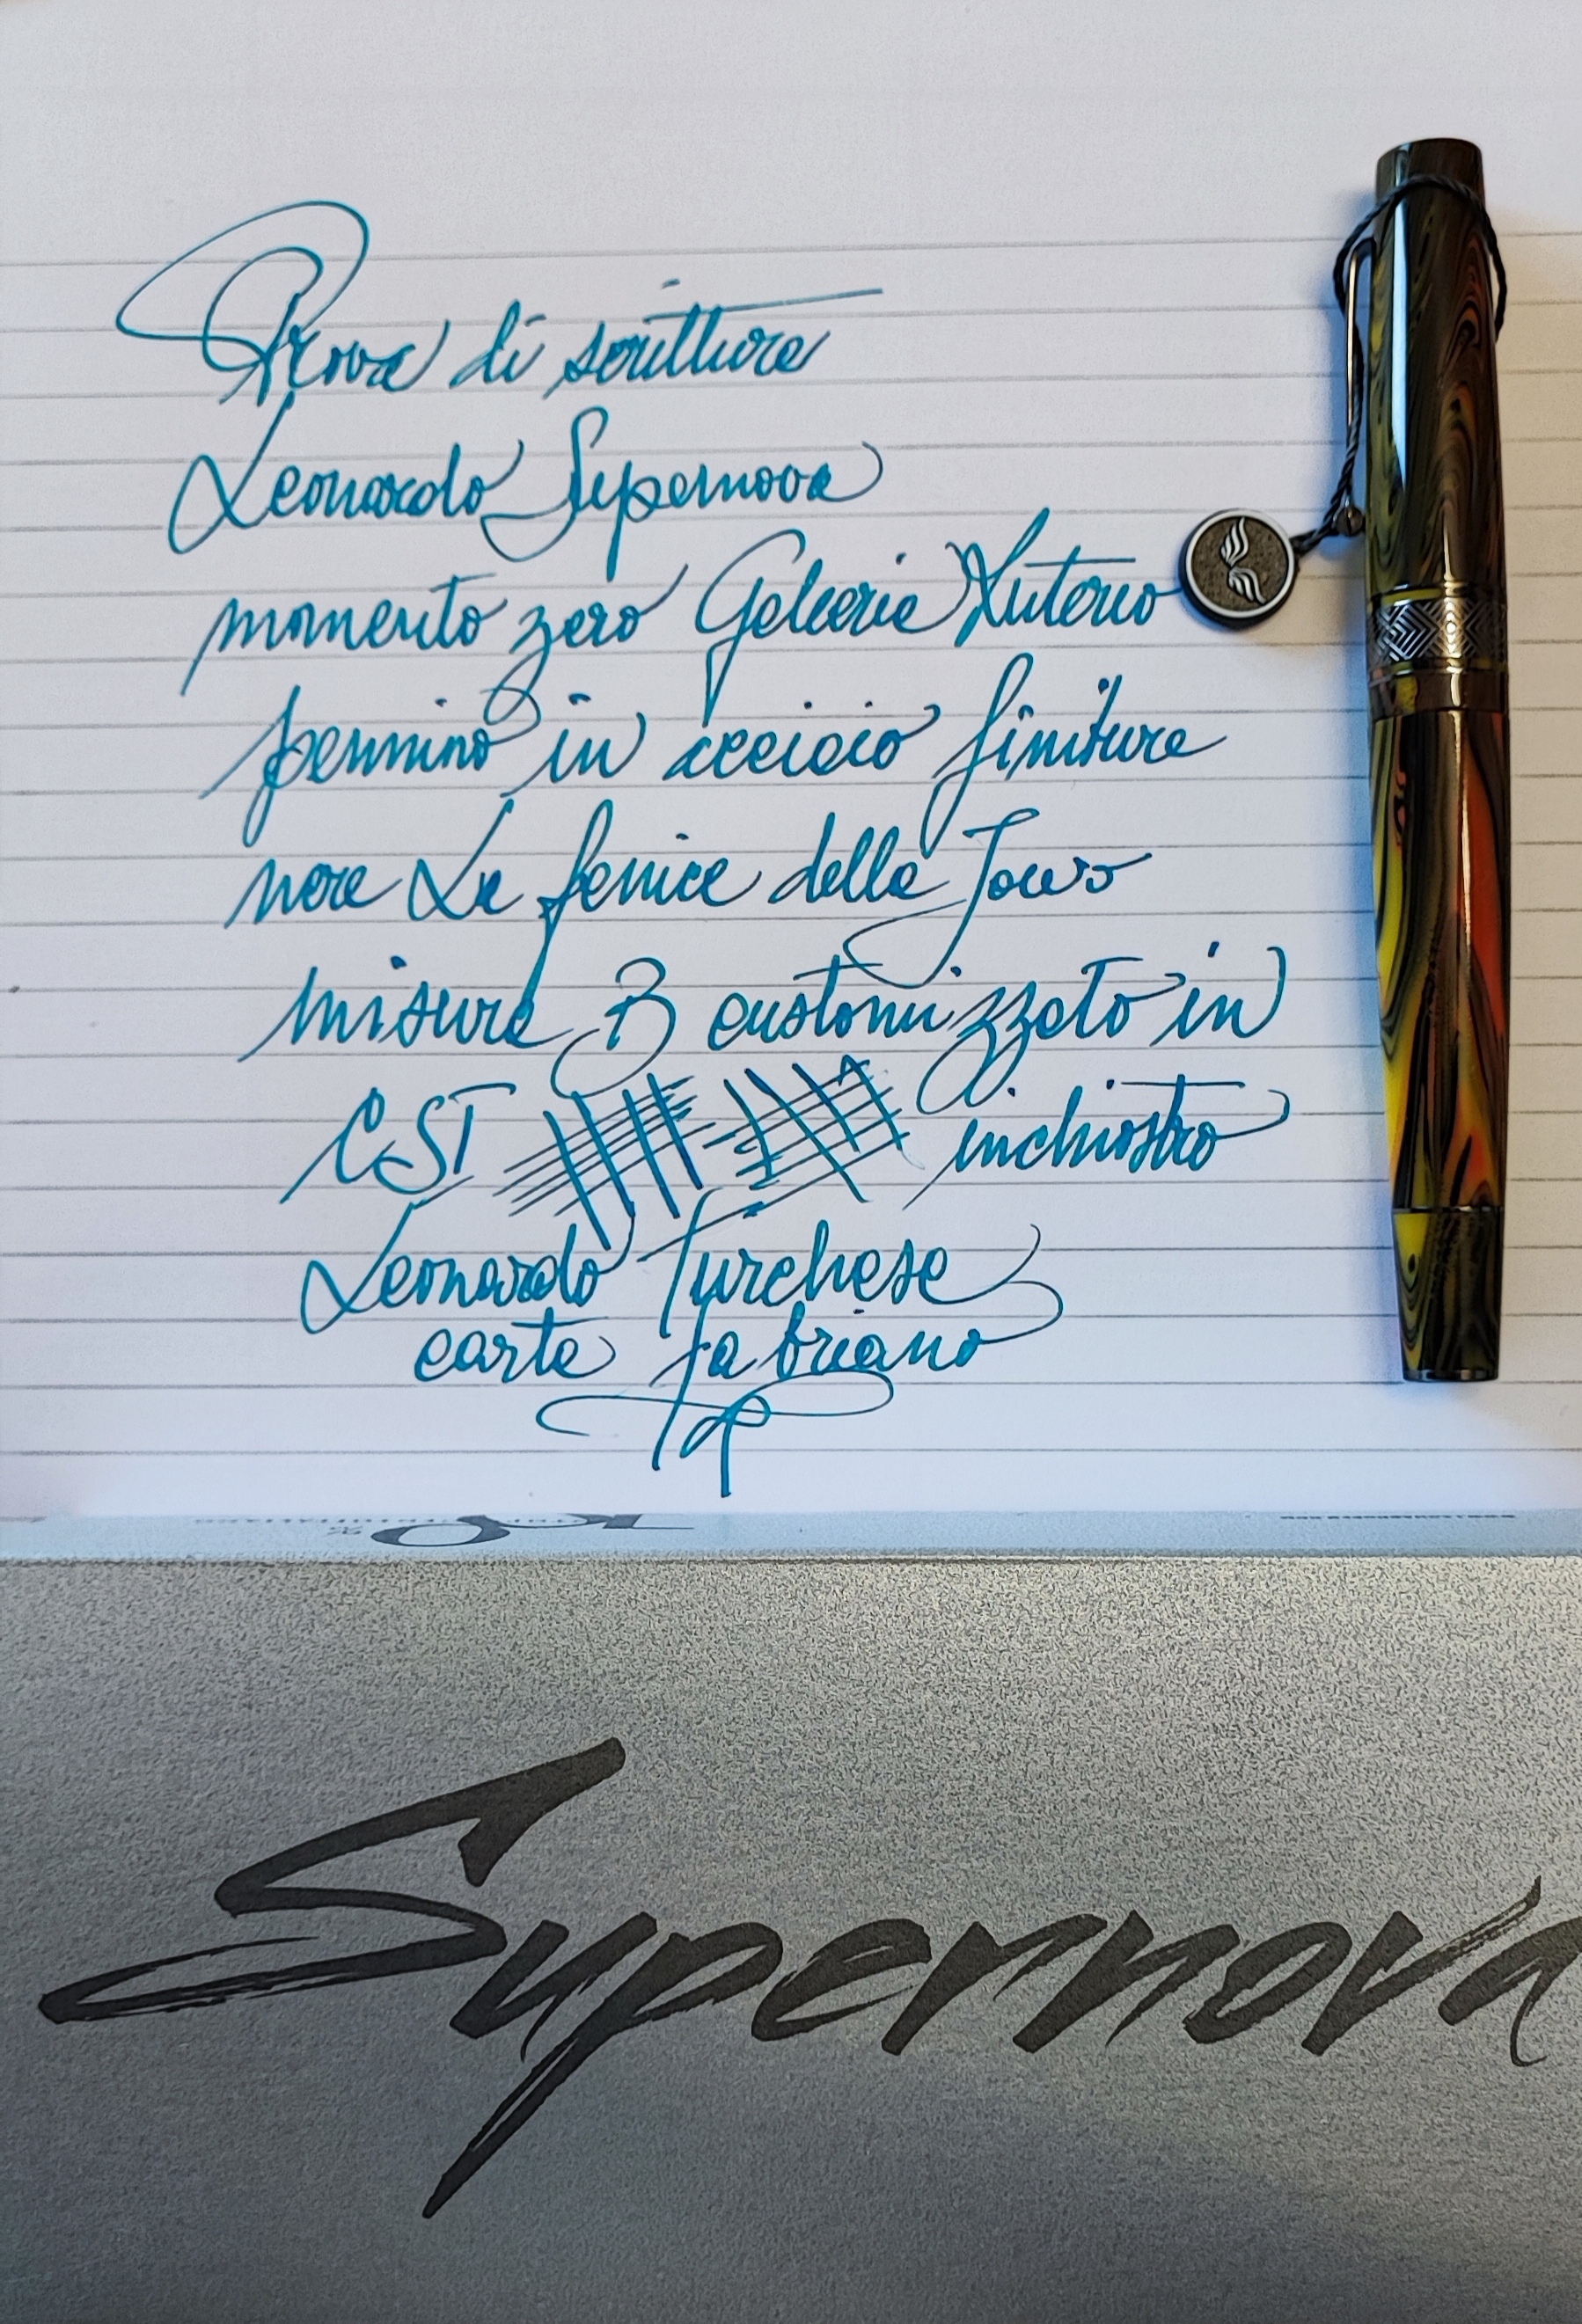 Prova di scrittura
Leonardo Supernova
momento zero Galleria
pennino in acciaio finiture
nere La fenice della Jowo
misura B customizzato in
CST inchiostro
Leonardo Turchese
carta fabriano
Supernova